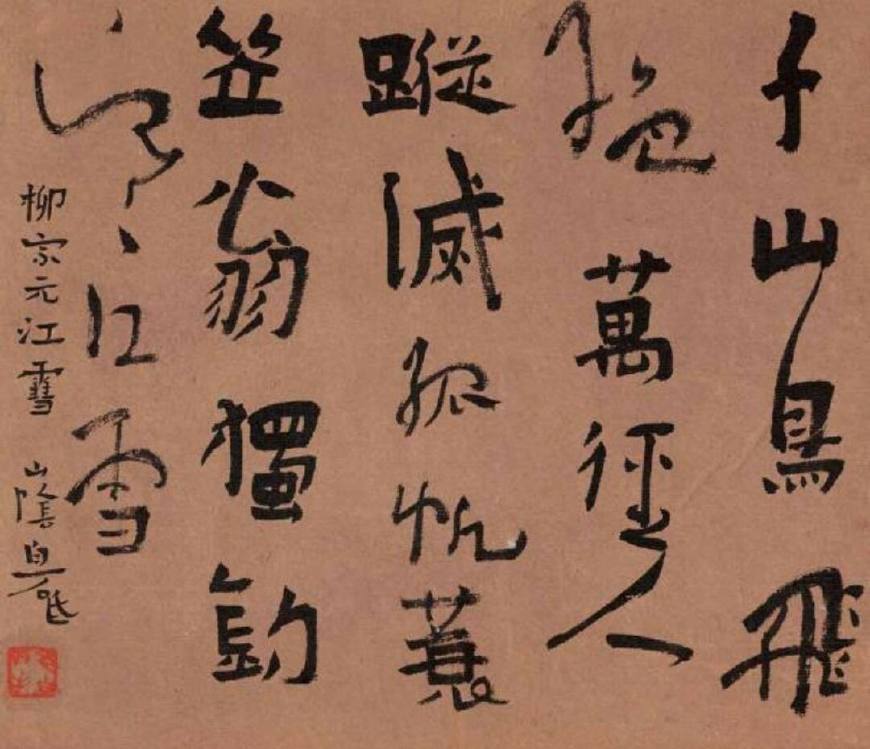 千山鳥飛
絕萬徑人
蹤滅孤帆蓑
笠翁獨釣
寒江雪
柳宗元江雪 山陰白砥